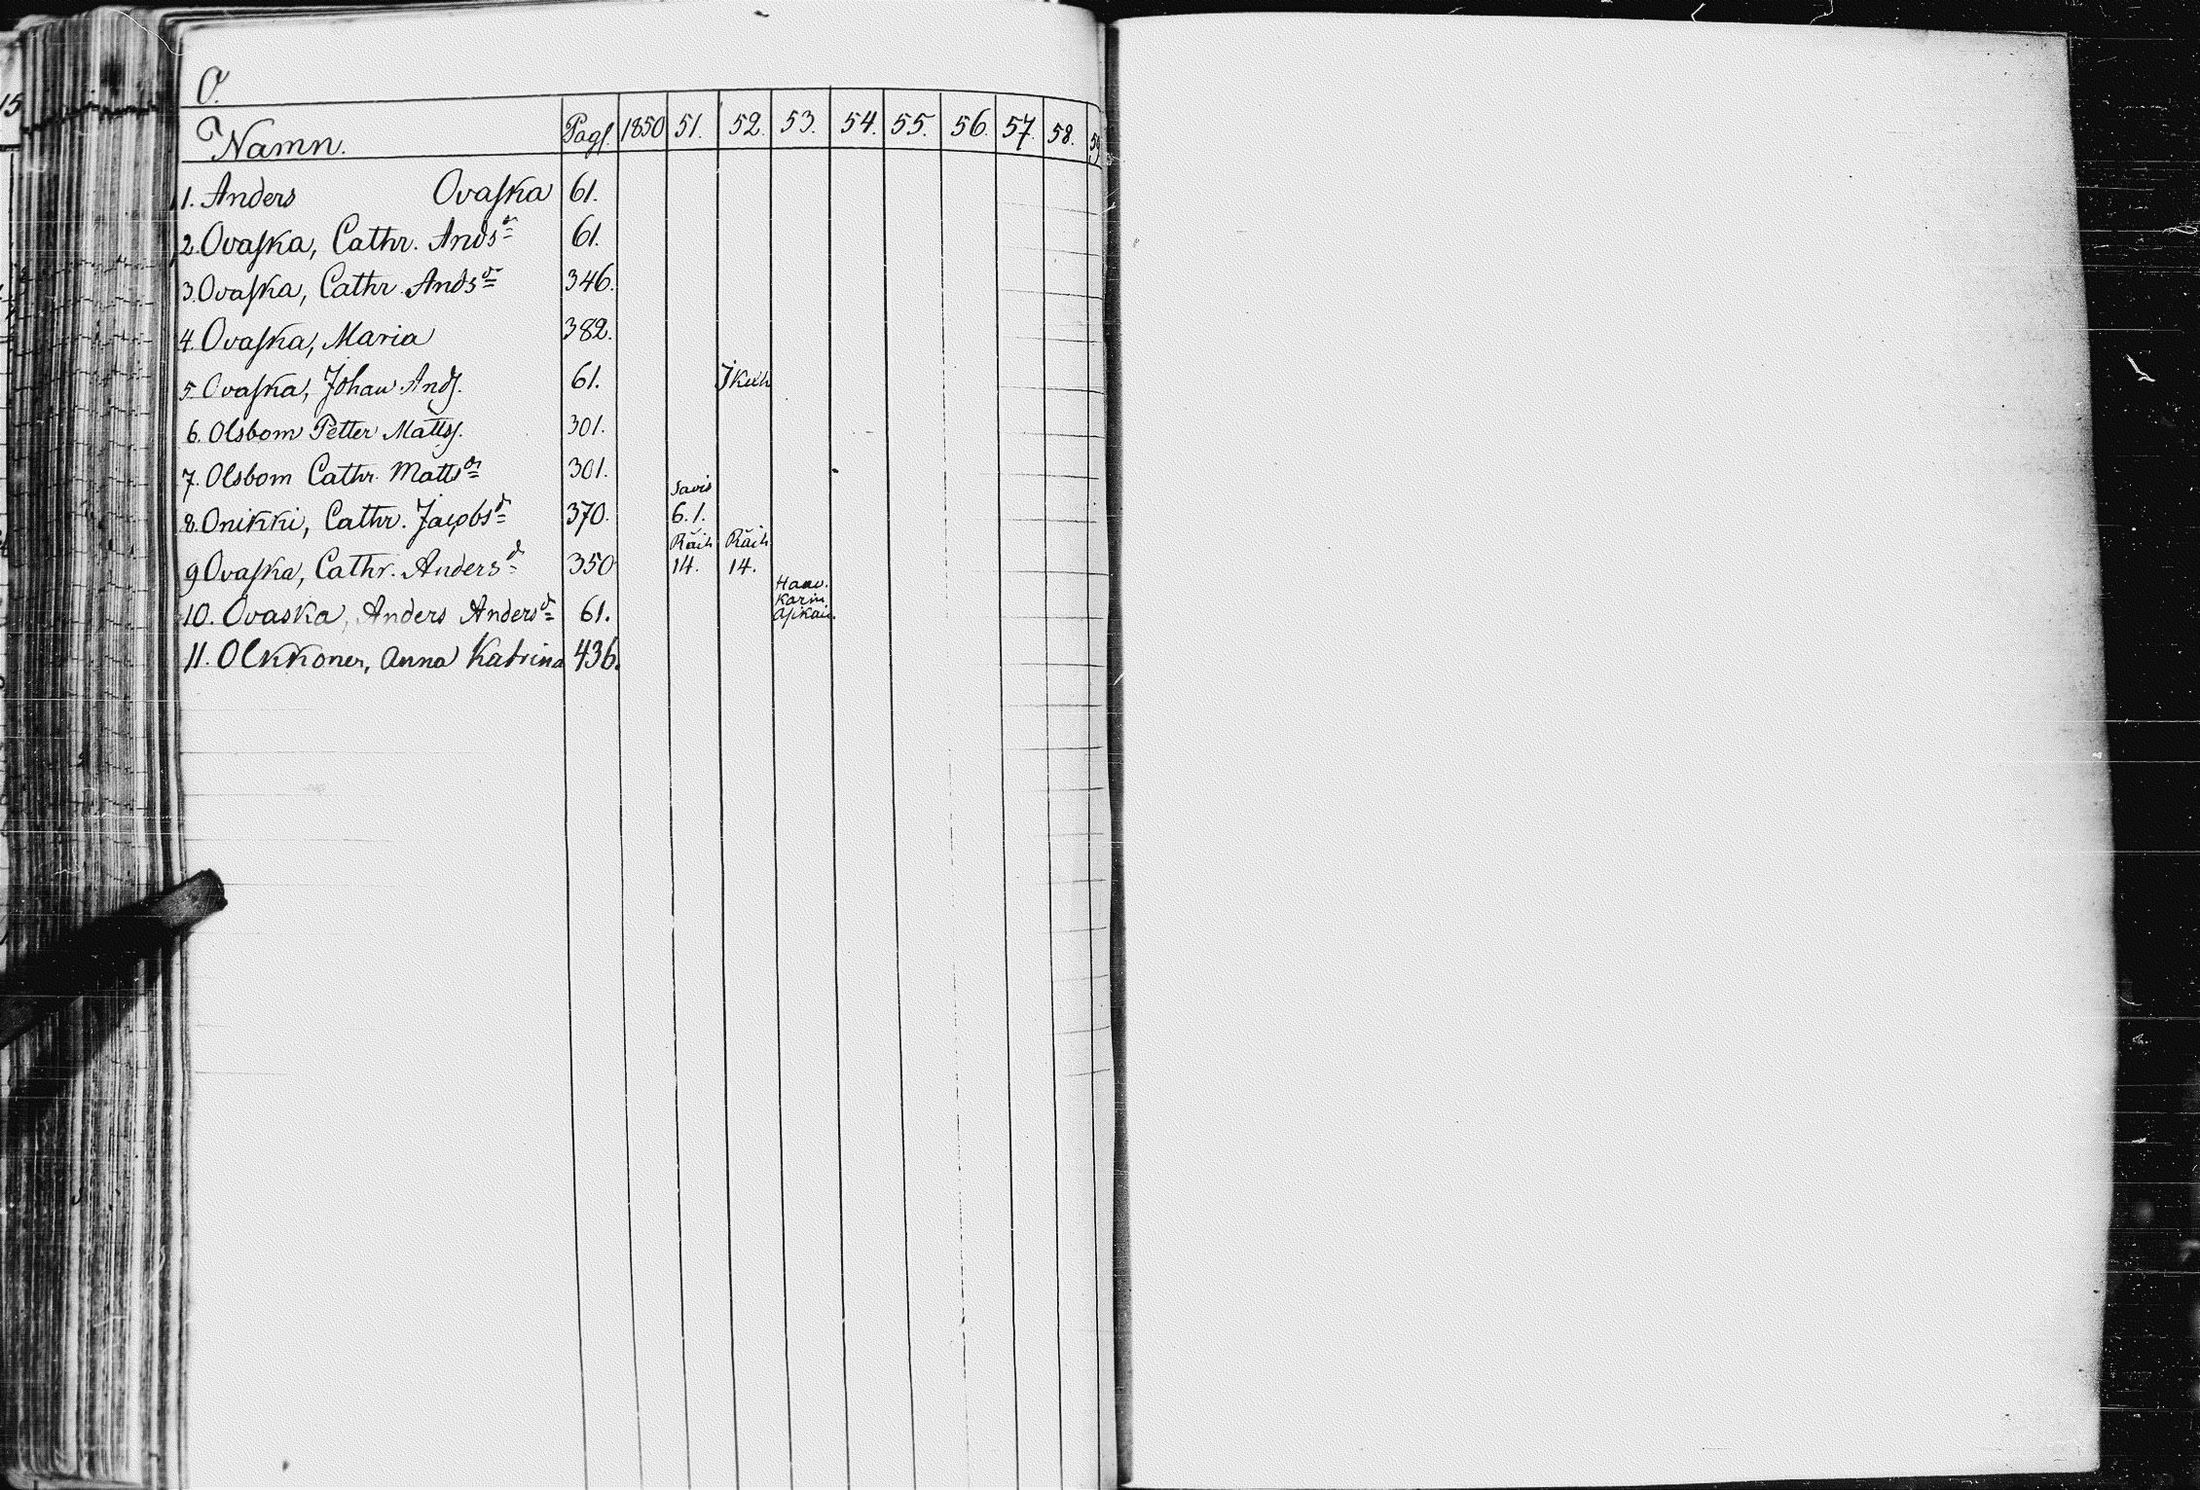 O.
Namn. Pag. 1850 51. 52. 53. 54. 55. 56. 57. 58. 59
1. Anders Ovaska 61.
2. Ovaska, Cathr. Andsdr 61.
3. Ovaska, Cathr. Andsdr 346.
4. Ovaska, Maria 382.
5. Ovaska, Johan Ands. 61.
6. Olsbom Petter Matts. 301.
7. Olsbom Cathr. Mattsdr 301.
8. Onikki, Cathr. Jacobsd 370. Savis 6.1.
9 Ovaska, Cathr. Andersd 350 Räih 14. Räih 14.
10. Ovaska, Anders Andersd 61. Karin
11. Olkkonen, Anna Katrina 436.
15